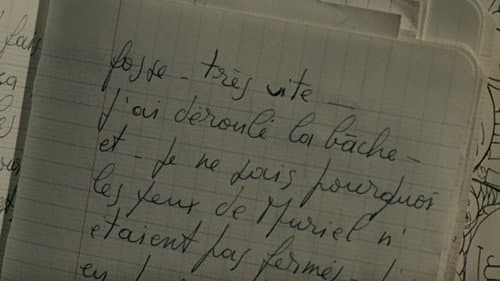 fosse - très vite -
j'ai déroulé la bâche -
et - je ne sais pourquoi
les yeux de Muriel n'
étaient pas fermés -
en